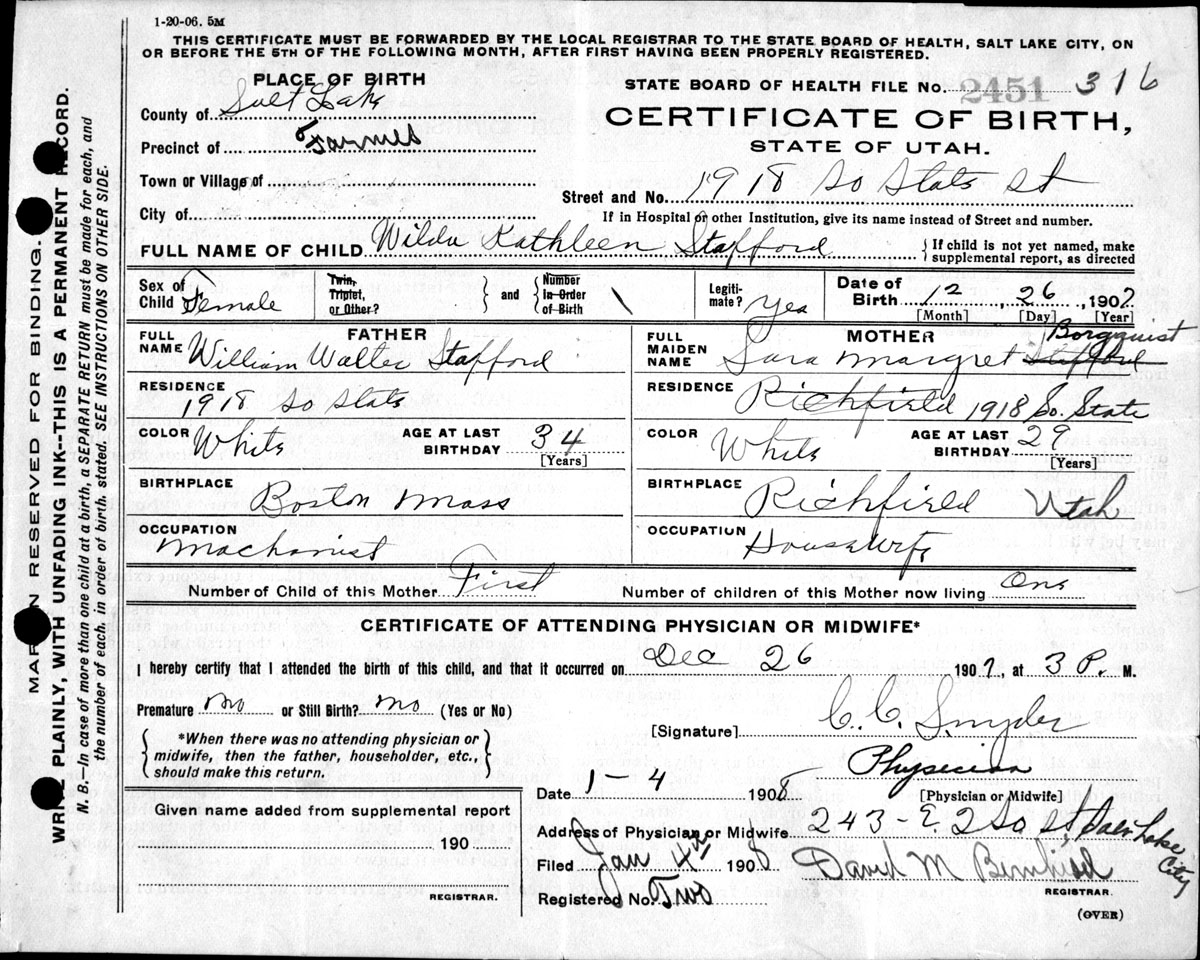 1-20-06. 5M
THIS CERTIFICATE MUST BE FORWARDED BY THE LOCAL REGISTRAR TO THE STATE BOARD OF HEALTH, SALT LAKE CITY, ON
OR BEFORE THE 5TH OF THE FOLLOWING MONTH, AFTER FIRST HAVING BEEN PROPERLY REGISTERED.
MARGIN RESERVED FOR BINDING.
WRITE PLAINLY, WITH UNFADING INK--THIS IS A PERMANENT RECORD.
N. B.—In case of more than one child at a birth, a SEPARATE RETURN must be made for each, and
the number of each, in order of birth, stated. SEE INSTRUCTIONS ON OTHER SIDE.
PLACE OF BIRTH
County of Salt Lake
Precinct of Farmers
Town or Village of
City of
STATE BOARD OF HEALTH FILE No. 2451 316
CERTIFICATE OF BIRTH,
STATE OF UTAH.
Street and No. 1918 So State St
If in Hospital or other Institution, give its name instead of Street and number.
FULL NAME OF CHILD Wilda Kathleen Stafford { If child is not yet named, make
supplemental report, as directed
Sex of Child Female
Twin, Triplet, or Other? } and { Number In Order of Birth \
Legiti-mate? Yes
Date of Birth 12 26, 1907
[Month] [Day] [Year]
FATHER
FULL NAME William Walter Stafford
RESIDENCE 1918 So State
COLOR White AGE AT LAST BIRTHDAY 34
[Years]
BIRTHPLACE Boston Mass
OCCUPATION Machanist
MOTHER
FULL MAIDEN NAME Sara Margret Stafford Borgquist
RESIDENCE Richfield 1918 So. State
COLOR White AGE AT LAST BIRTHDAY 29
[Years]
BIRTHPLACE Richfield Utah
OCCUPATION Housewife
Number of Child of this Mother First Number of children of this Mother now living One
CERTIFICATE OF ATTENDING PHYSICIAN OR MIDWIFE*
I hereby certify that I attended the birth of this child, and that it occurred on Dec 26 1907, at 3 P. M.
Premature No or Still Birth? No (Yes or No)
{ *When there was no attending physician or
midwife, then the father, householder, etc.,
should make this return. }
[Signature] C. C. Snyder
Physician
[Physician or Midwife]
Date 1-4 1908
Address of Physician or Midwife 243-E. 2 So St, Salt Lake City
Filed Jan 4th 1908 David M
REGISTRAR.
Registered No. Two
(OVER)
Given name added from supplemental report
190
REGISTRAR.